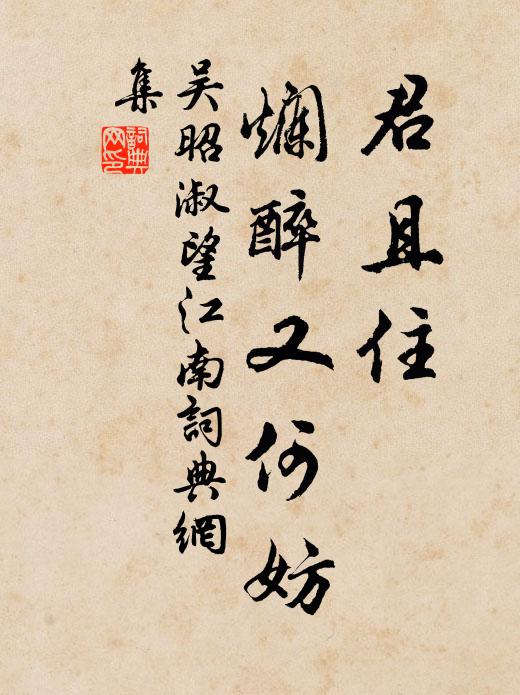 君且住
爛醉又何妨
吴昭淑望江南詞典網
集
詞典网印